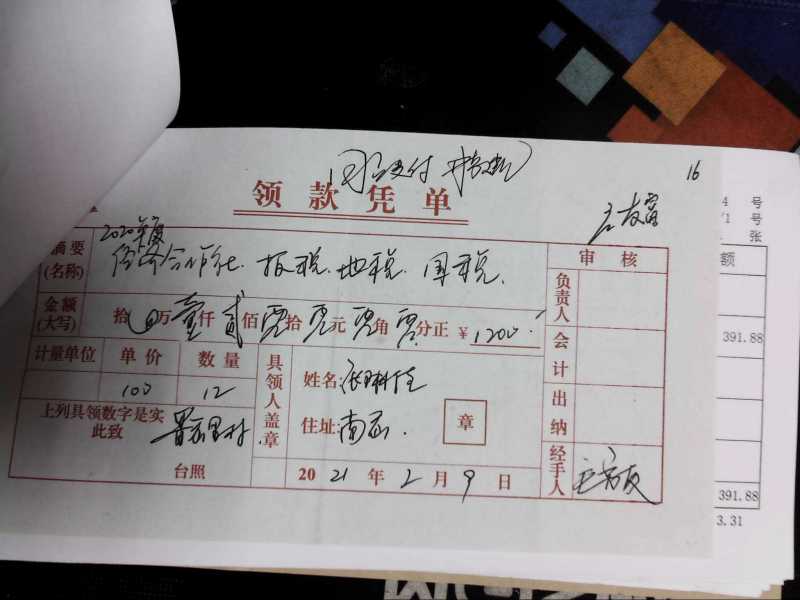 同意支付
16
领款凭单
2020年度
摘要(名称) 经济合作社.报税.地税.国税.
审核
负责人
会计
出纳
经手人
金额(大写) 拾 万壹仟贰佰零拾零元零角零分正 ¥1200.
计量单位 单价 数量
100 12
具领人盖章
姓名:
住址:南
章
上列具领数字是实
此致
台照
2021年2月9日
4 号
/1 号
张
额
391.88
391.88
3.31